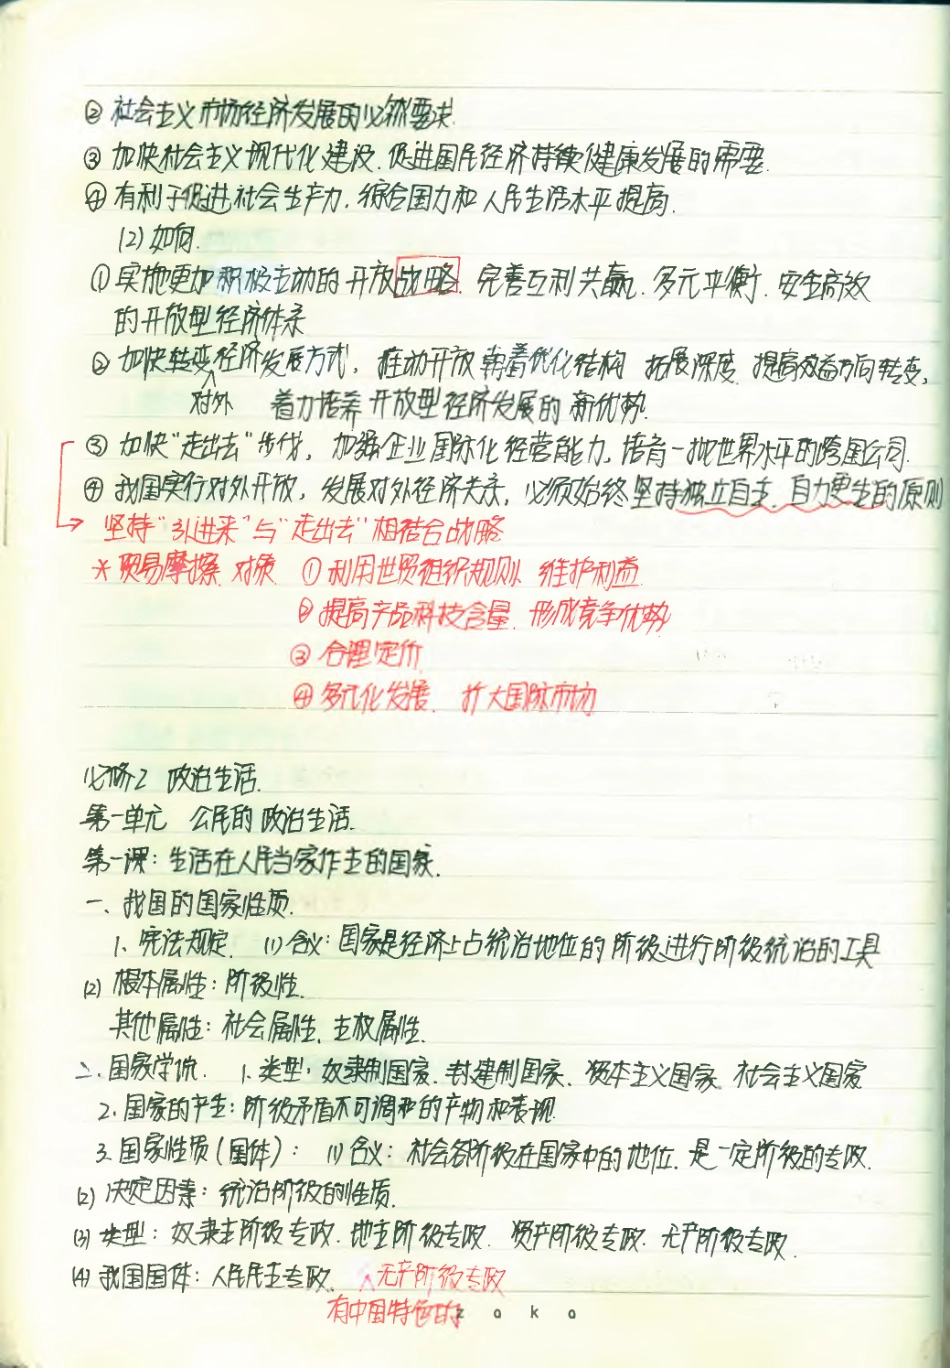 ② 社会主义市场经济发展的必然要求.
③ 加快社会主义现代化建设.促进国民经济持续健康发展的需要.
④ 有利于促进社会生产力.综合国力和人民生活水平提高.
(2)如何.
① 实施更加积极主动的开放战略.完善互利共赢.多元平衡.安全高效
的开放型经济体系
② 加快转变经济发展方式，推动开放朝着优化结构 拓展深度.提高效益方向转变,
对外 着力培养开放型经济发展的新优势.
③ 加快“走出去”步伐，加强企业国际化经营能力,培育一批世界水平的跨国公司.
④ 我国实行对外开放，发展对外经济关系，必须始终坚持独立自主.自力更生的原则
坚持“引进来”与“走出去”相结合战略
* 贸易摩擦.对策 ① 利用世贸组织规则.维护利益.
② 提高产品科技含量.形成竞争优势
③ 合理定价
④ 多元化发展.扩大国际市场
必修2 政治生活.
第一单元 公民的政治生活.
第一课：生活在人民当家作主的国家.
一、我国的国家性质.
1、宪法规定. (1)含义:国家是经济上占统治地位的阶级进行阶级统治的工具
(2) 根本属性：阶级性.
其他属性：社会属性.主权属性.
二.国家学说. 1.类型：奴隶制国家.封建制国家.资本主义国家.社会主义国家
2.国家的产生：阶级矛盾不可调和的产物和表现.
3.国家性质(国体)： (1)含义：社会各阶级在国家中的地位.是一定阶级的专政.
(2) 决定因素：统治阶级的性质.
(3) 类型：奴隶主阶级专政.地主阶级专政.资产阶级专政.无产阶级专政.
(4) 我国国体：人民民主专政. 无产阶级专政
有中国特色的
zaka